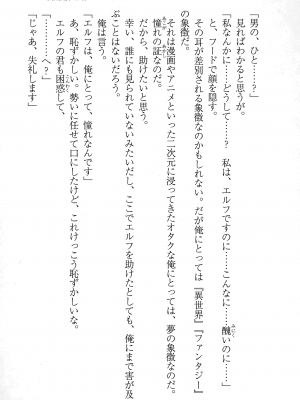 「男の、ひと……？」
見ればわかると思うが。
「私なんかに……どうして……？　私は、エルフですのに……こんなに……醜いのに……」
と、フードで顔を隠す。
その耳が差別される象徴なのかもしれない。だが俺にとっては『異世界』『ファンタジー』
の象徴だ。
それは漫画やアニメといった二次元に浸ってきたオタクな俺にとっては、夢の象徴なのだ。
憧れの証なのだ。
だから、助けたいと思う。
幸い、誰にも見られていないみたいだし、ここでエルフを助けたとしても、俺にまで害が及
ぶことはないだろう。
俺は言う。
「エルフは、俺にとって、憧れなんです」
あ、恥ずかしい。勢いに任せて口にしたけど、これけっこう恥ずかしいな。
エルフの君も困惑して、
「…………へ？」
「じゃあ、失礼します」